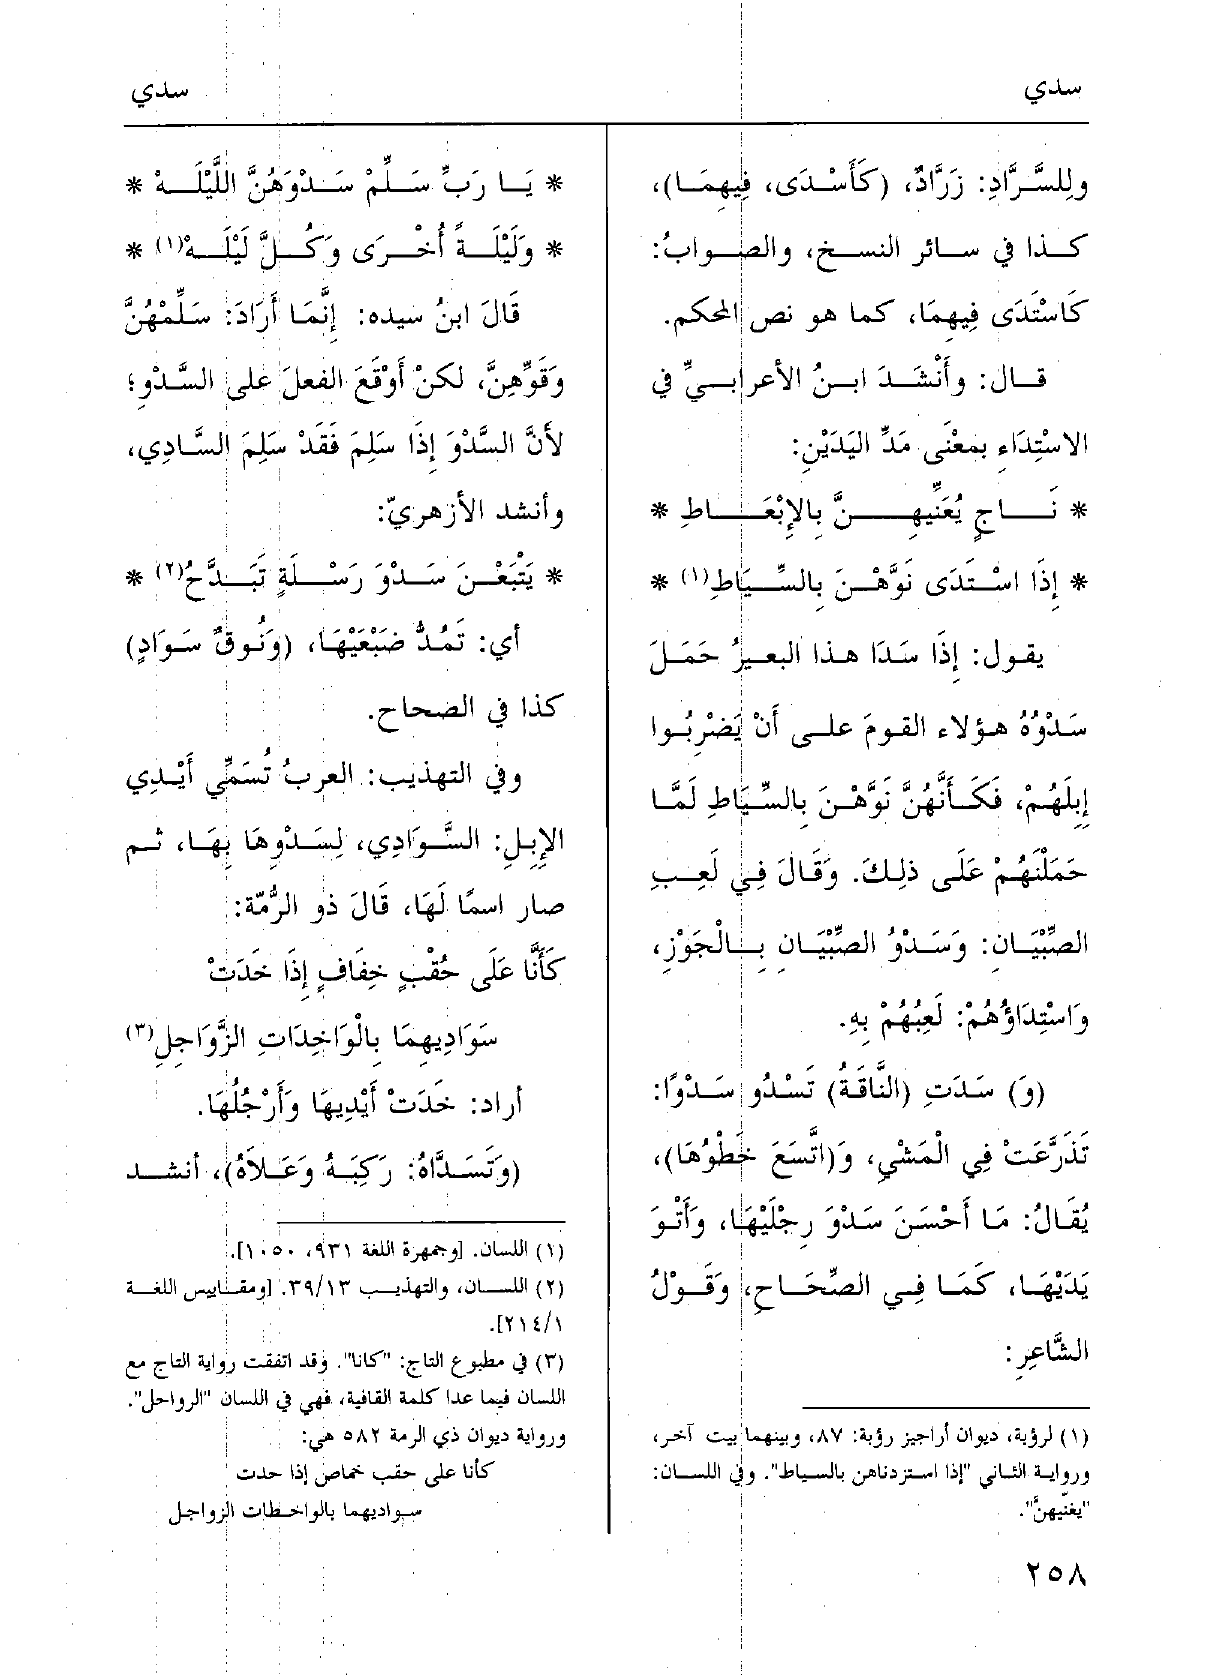 سدي
سدي
ولِلسَّرَّادِ: زَرَّادٌ، (كَأَسْدَى، فِيهِمَا)،
كذا في سائر النسخ، والصوابُ:
كَاسْتَدَى فِيهِمَا، كما هو نص المحكم.
قال: وأَنْشَدَ ابنُ الأعرابيِّ في
الاسْتِدَاءِ بمعْنَى مَدِّ اليَدَيْنِ:
* نَاجٍ يُعَنِّيهِنَّ بِالإِبْعَاطِ *
* إِذَا اسْتَدَى نَوَّهْنَ بِالسِّيَاطِ(١) *
يقول: إِذَا سَدَا هذا البعيرُ حَمَلَ
سَدْوُهُ هؤلاء القومَ على أَنْ يَضْرِبُوا
إِبِلَهُمْ، فَكَأَنَّهُنَّ نَوَّهْنَ بِالسِّيَاطِ لَمَّا
حَمَلْنَهُمْ عَلَى ذلِكَ. وَقَالَ فِي لَعِبِ
الصِّبْيَانِ: وَسَدْوُ الصِّبْيَانِ بِالْجَوْزِ،
وَاسْتِدَاؤُهُمْ: لَعِبُهُمْ بِهِ.
(وَ) سَدَتِ (النَّاقَةُ) تَسْدُو سَدْوًا:
تَذَرَّعَتْ فِي الْمَشْيِ، وَ(اتَّسَعَ خَطْوُهَا)،
يُقَالُ: مَا أَحْسَنَ سَدْوَ رِجْلَيْهَا، وَأَتْوَ
يَدَيْهَا، كَمَا فِي الصِّحَاحِ، وَقَوْلُ
الشَّاعِرِ:
(١) لرؤبة، ديوان أراجيز رؤبة: ٨٧، وبينهما بيت آخر،
ورواية الثاني "إذا استزدناهن بالسياط". وفي اللسان:
"يغنّيهنَّ".
* يَا رَبِّ سَلِّمْ سَدْوَهُنَّ اللَّيْلَهْ *
* وَلَيْلَةً أُخْرَى وَكُلَّ لَيْلَهْ(١) *
قَالَ ابنُ سيده: إِنَّمَا أَرَادَ: سَلِّمْهُنَّ
وَقَوِّهِنَّ، لكنْ أَوْقَعَ الفعلَ على السَّدْوِ؛
لأَنَّ السَّدْوَ إِذَا سَلِمَ فَقَدْ سَلِمَ السَّادِي،
وأنشد الأزهريّ:
* يَتْبَعْنَ سَدْوَ رَسْلَةٍ تَبَدَّحُ(٢) *
أي: تَمُدُّ ضَبْعَيْهَا، (وَنُوقٌ سَوَادٍ)
كذا في الصحاح.
وفي التهذيب: العربُ تُسَمِّي أَيْدِي
الإِبِلِ: السَّوَادِي، لِسَدْوِهَا بِهَا، ثم
صار اسمًا لَهَا، قَالَ ذو الرُّمّة:
كَأَنَّا عَلَى حُقْبٍ خِفَافٍ إِذَا خَدَتْ
سَوَادِيهِمَا بِالْوَاخِدَاتِ الزَّوَاجِلِ(٣)
أراد: خَدَتْ أَيْدِيهَا وَأَرْجُلُهَا.
(وَتَسَدَّاهُ: رَكِبَهُ وَعَلاَهُ)، أنشد
(١) اللسان. [وجمهرة اللغة ٩٣١، ١٠٥٠].
(٢) اللسان، والتهذيب ٣٩/١٣. [ومقاييس اللغة
٢١٤/١].
(٣) في مطبوع التاج: "كانا". وقد اتفقت رواية التاج مع
اللسان فيما عدا كلمة القافية، فهي في اللسان "الرواحل".
ورواية ديوان ذي الرمة ٥٨٢ هي:
كأنا على حقب خماص إذا حدت
سواديهما بالواخطات الزواجل
٢٥٨